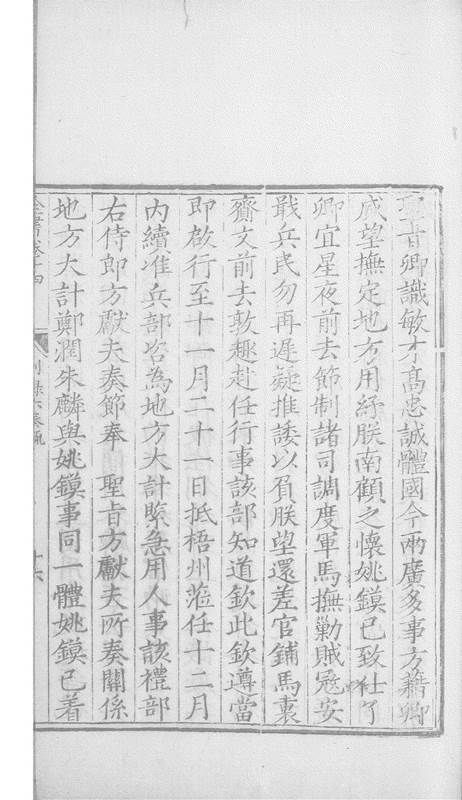 聖旨卿識敏才高忠誠體國今兩廣多事方藉卿
威望撫定地方用紓朕南顧之懷姚鏌已致仕了
卿宜星夜前去節制諸司調度軍馬撫勦賊冦安
戢兵民勿再遲疑推諉以負朕望還差官鋪馬裏
齎文前去敦趣赴任行事該部知道欽此欽遵當
即啟行至十一月二十一日抵梧州蒞任十二月
內續准兵部咨為地方大計緊急用人事該禮部
右侍郎方獻夫奏節奉 聖旨方獻夫所奏關係
地方大計鄭潤朱麟與姚鏌事同一體姚鏌已着
全書卷十四 別錄六奏疏 十六